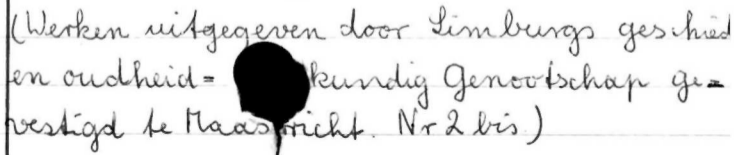 (Werken uitgegeven door Limburgs geschied
en oudheid= kundig Genootschap ge=
vestigd te Nr 2 bis.)